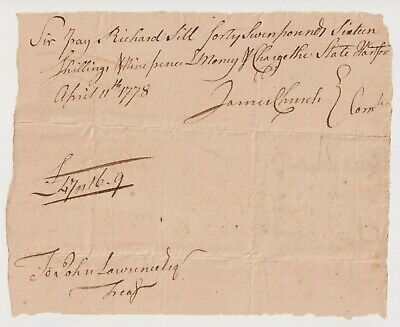 Sir pay Richard Sill forty Seven pounds Sixteen
Shillings & Nine pence L Money & Charge the State Hartfor
April 11th 1778
James Church } Comtte
£47 „ 16 - 9
To John Lawrence Esqr
Treasr